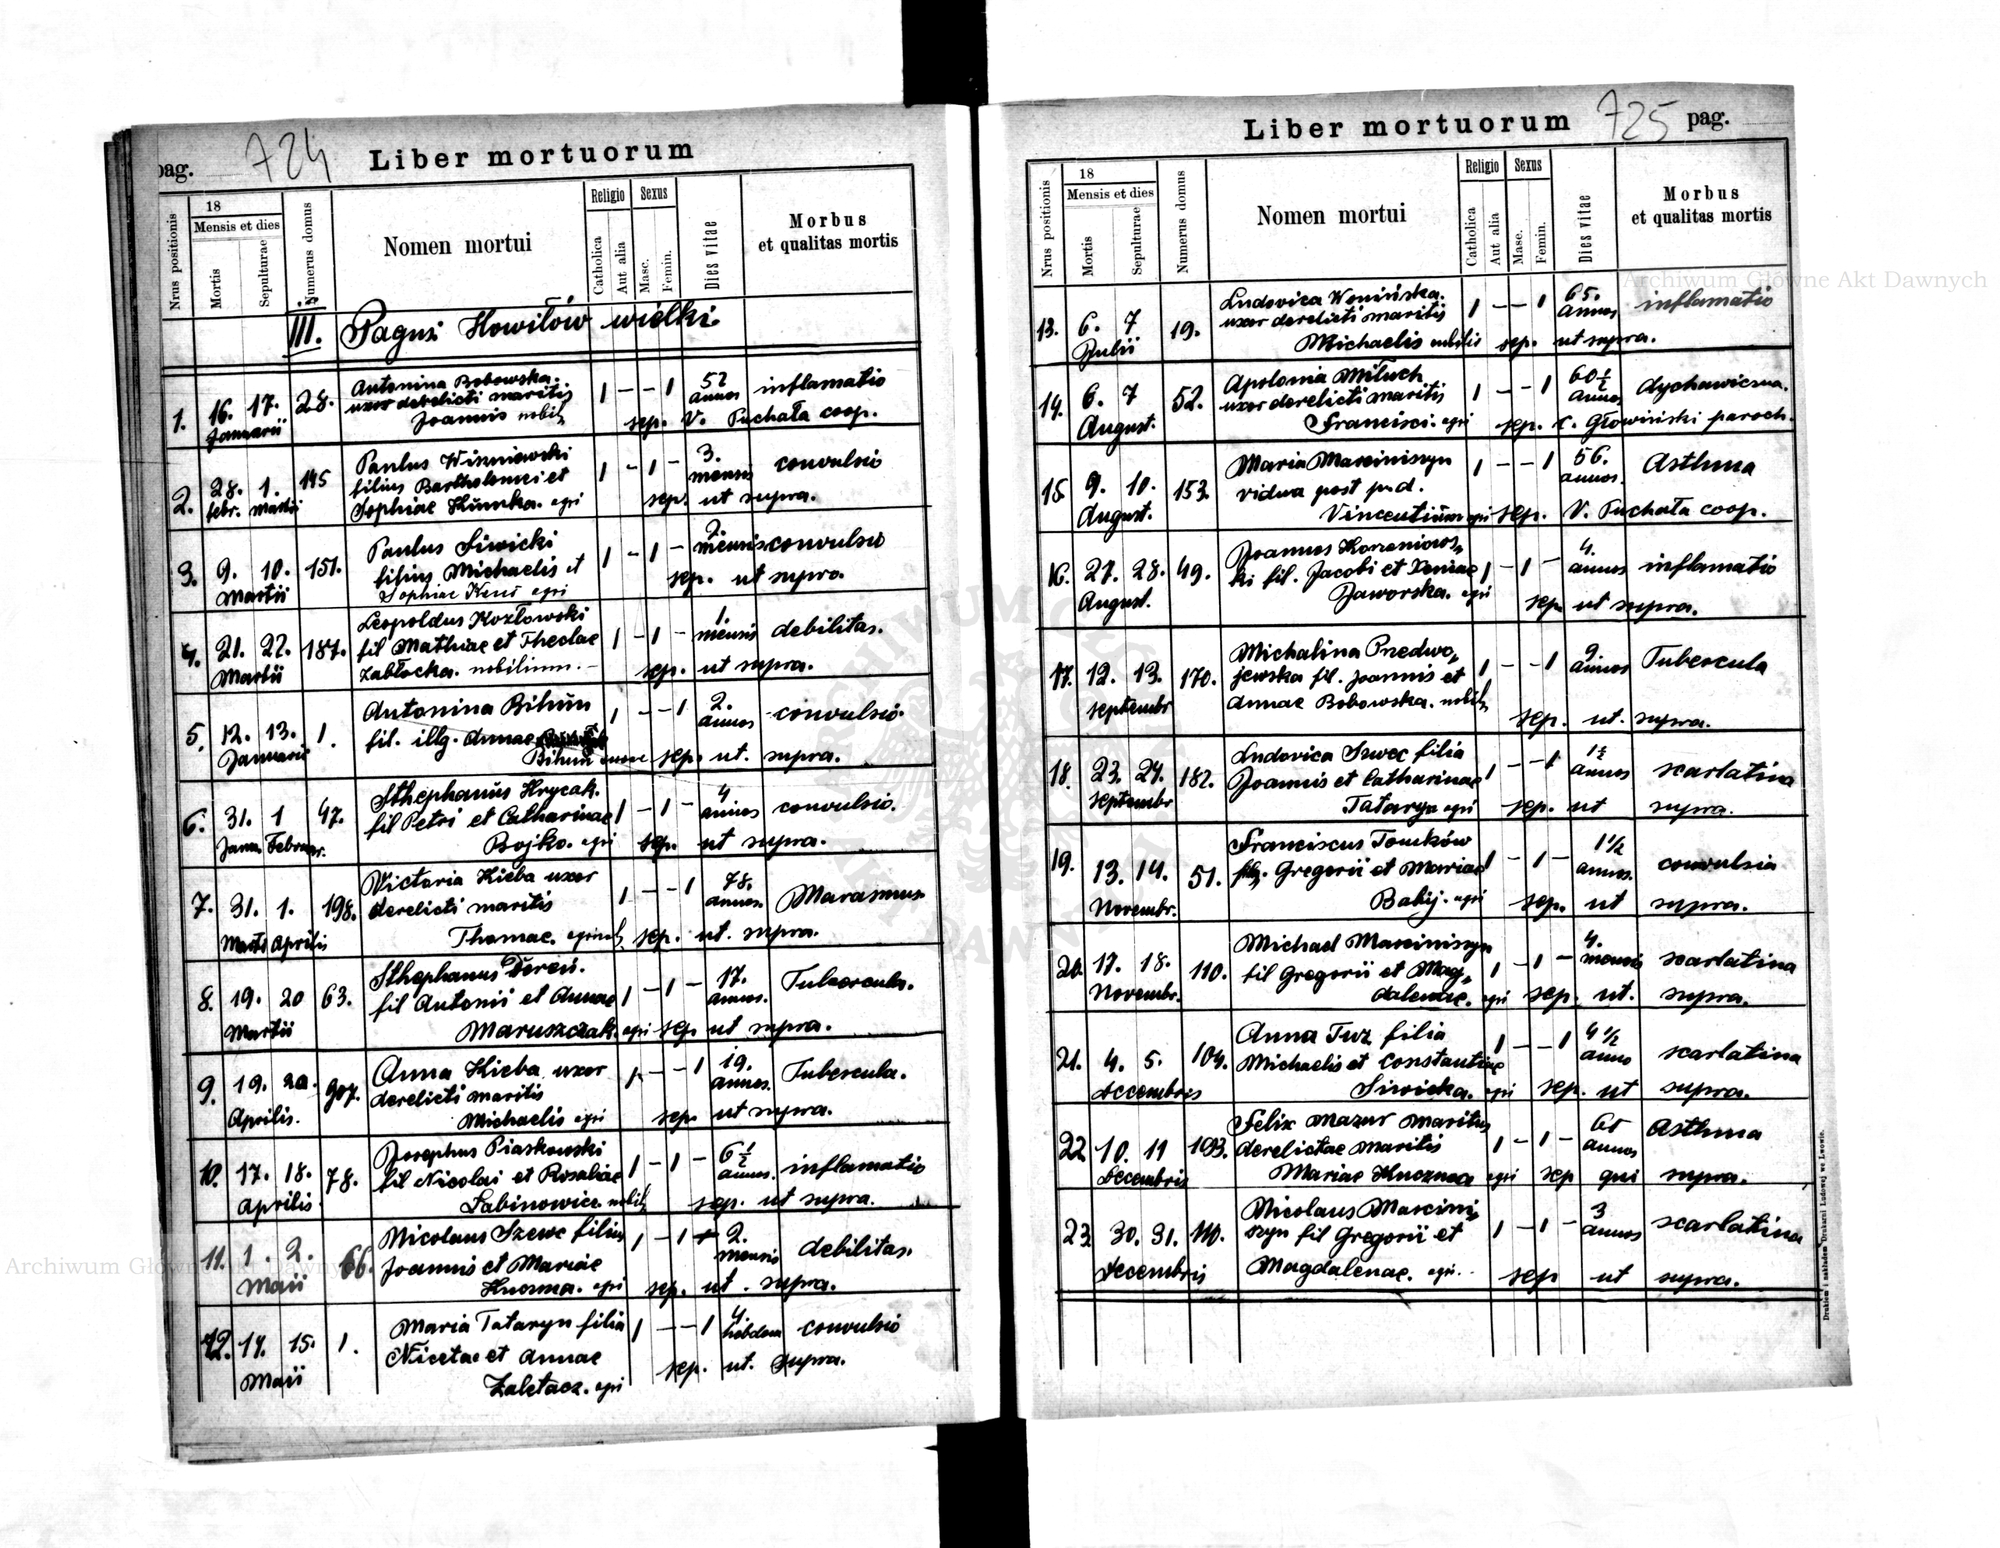 pag. 724 Liber mortuorum
Nrus positionis
18
Mensis et dies
Mortis
Sepulturae
Numerus domus
Nomen mortui
Religio
Catholica
Aut alia
Sexus
Masc.
Femin.
Dies vitae
Morbus
et qualitas mortis
III. Pagus Howiłów wielki
1. 16. 17. 28. Antonina Bobowska. 1 – – 1 52 inflamatio
Januarii uxor derelicti maritis annos
Joannis nobil. sep. V. Puchała coop.
2. 28. 1. 145 Paulus Wiszniewski 1 – 1 – 3. convulsio
febr. Martii filius Bartholomei et mensis
Sophiae Humka. agri sep. ut supra.
3. 9. 10. 151. Paulus Siwicki 1 – 1 – 2. convulsio
Martii filius Michaelis et mensis
Sophiae agri sep. ut supra
4. 21. 22. 187. Leopoldus Kozłowski 1 – 1 – 1. debilitas.
Martii fil Mathiae et Theclae mensis
Zabłocka. nobilium. – sep. ut supra.
5. 12. 13. 1. Antonina Bihun 1 – – 1 2. convulsio.
Januarii fil. illg. Annae annos
Bihun sep. ut. supra.
6. 31. 1 47. Sthephanus Hrycak. 1 – 1 – 4 convulsio.
Janu. Februar. fil Petri et Catharinae annos
Bojko. agri sep. ut supra.
7. 31. 1. 198. Victoria Kieba uxor 1 – – 1 78. Marasmus
Marts Aprilis derelicti maritis annos.
Thomae. sep. ut. supra.
8. 19. 20 63. Sthephanus Dereń. 1 – 1 – 17. Tubercula.
Martii fil Antonii et Annae annos.
Maruszczak. agri sep ut supra.
9. 19. 20. Anna Kieba uxor 1 – – 1 19. Tubercula.
Aprilis. derelicti maritis annos.
Michaelis agri sep. ut supra.
10. 17. 18. 78. Josephus Piaskowski 1 – 1 – 6 1/2 inflamatio
Aprilis fil Nicolai et Rosaliae annos.
Sabinowice nobil. sep. ut supra.
11. 1. 2. 66. Nicolaus Szewc filius 1 – 1 + 2. debilitas.
Maii Joannis et Mariae mensis
Huczma. agri sep. ut. supra.
12. 14. 15. 1. Maria Tataryn filia 1 – – 1 4. convulsio
Maii Nicetae et Annae hebdom
Zaletacz. agri sep. ut. supra.
Liber mortuorum 725 pag.
Nrus positionis
18
Mensis et dies
Mortis
Sepulturae
Numerus domus
Nomen mortui
Religio
Catholica
Aut alia
Sexus
Masc.
Femin.
Dies vitae
Morbus
et qualitas mortis
13. 6. 7 19. Ludovica Wonińska. 1 – – 1 65. inflamatio
Julii uxor derelicti maritis annos
Michaelis nobilis sep. ut supra.
14. 6. 7 52. Apolonia Miluch 1 – – 1 60 1/2 dychawiczna.
August. uxor derelicti maritis annos
Francisci. agri sep. C. Głowiński paroch.
15. 9. 10. 153. Maria Marciniszyn 1 – – 1 56. Asthma
August. vidua post p. d. annos.
Vincentium agri sep. V. Puchała coop.
16. 27. 28. 49. Joannes Korzeniows„ 1 – 1 – 4. inflamatio
August. ki fil. Jacobi et Xeniae annos
Jaworska. agri sep ut supra.
17. 12. 13. 170. Michalina Przedwo„ 1 – – 1 9 Tubercula
Septembr jewska fil. Joannis et annos
Annae Bobowska. nobil. sep. ut. supra.
18. 23. 24. 182. Ludovica Szwec filia 1 – – 1 1 1/2 scarlatina
Septembr Joannis et Catharinae annos
Tataryn agri sep. ut supra.
19. 13. 14. 51. Franciscus Tomków 1 – 1 – 1 1/2 convulsia
Novembr. filg. Gregorii et Mariae annos.
Babij. agri sep. ut supra.
20. 17. 18. 110. Michael Marciniszyn 1 – 1 – 4. scarlatina
Novembr. fil Gregorii et Mag„ mensis
dalenae. agri sep. ut. supra.
21. 4. 5. 104. Anna Tuz filia 1 – – 1 4 1/2 scarlatina
Decembris Michaelis et Constantiae anno
Siwicka. agri sep. ut supra.
22 10. 11 193. Felix Mazur maritus 1 – 1 – 65 Asthma
Decembris derelictae maritis annos
Mariae agri sep qui supra.
23. 30. 31. 110. Nicolaus Marcini„ 1 – 1 – 3 scarlatina
Decembris szyn fil Gregorii et annos
Magdalenae. agri. sep ut supra.
Drukiem i nakładem Drukarni Ludowej we Lwowie.
Archiwum Główne Akt Dawnych
Archiwum Główne Akt Dawnych
ARCHIWUM GŁÓWNE AKT DAWNYCH